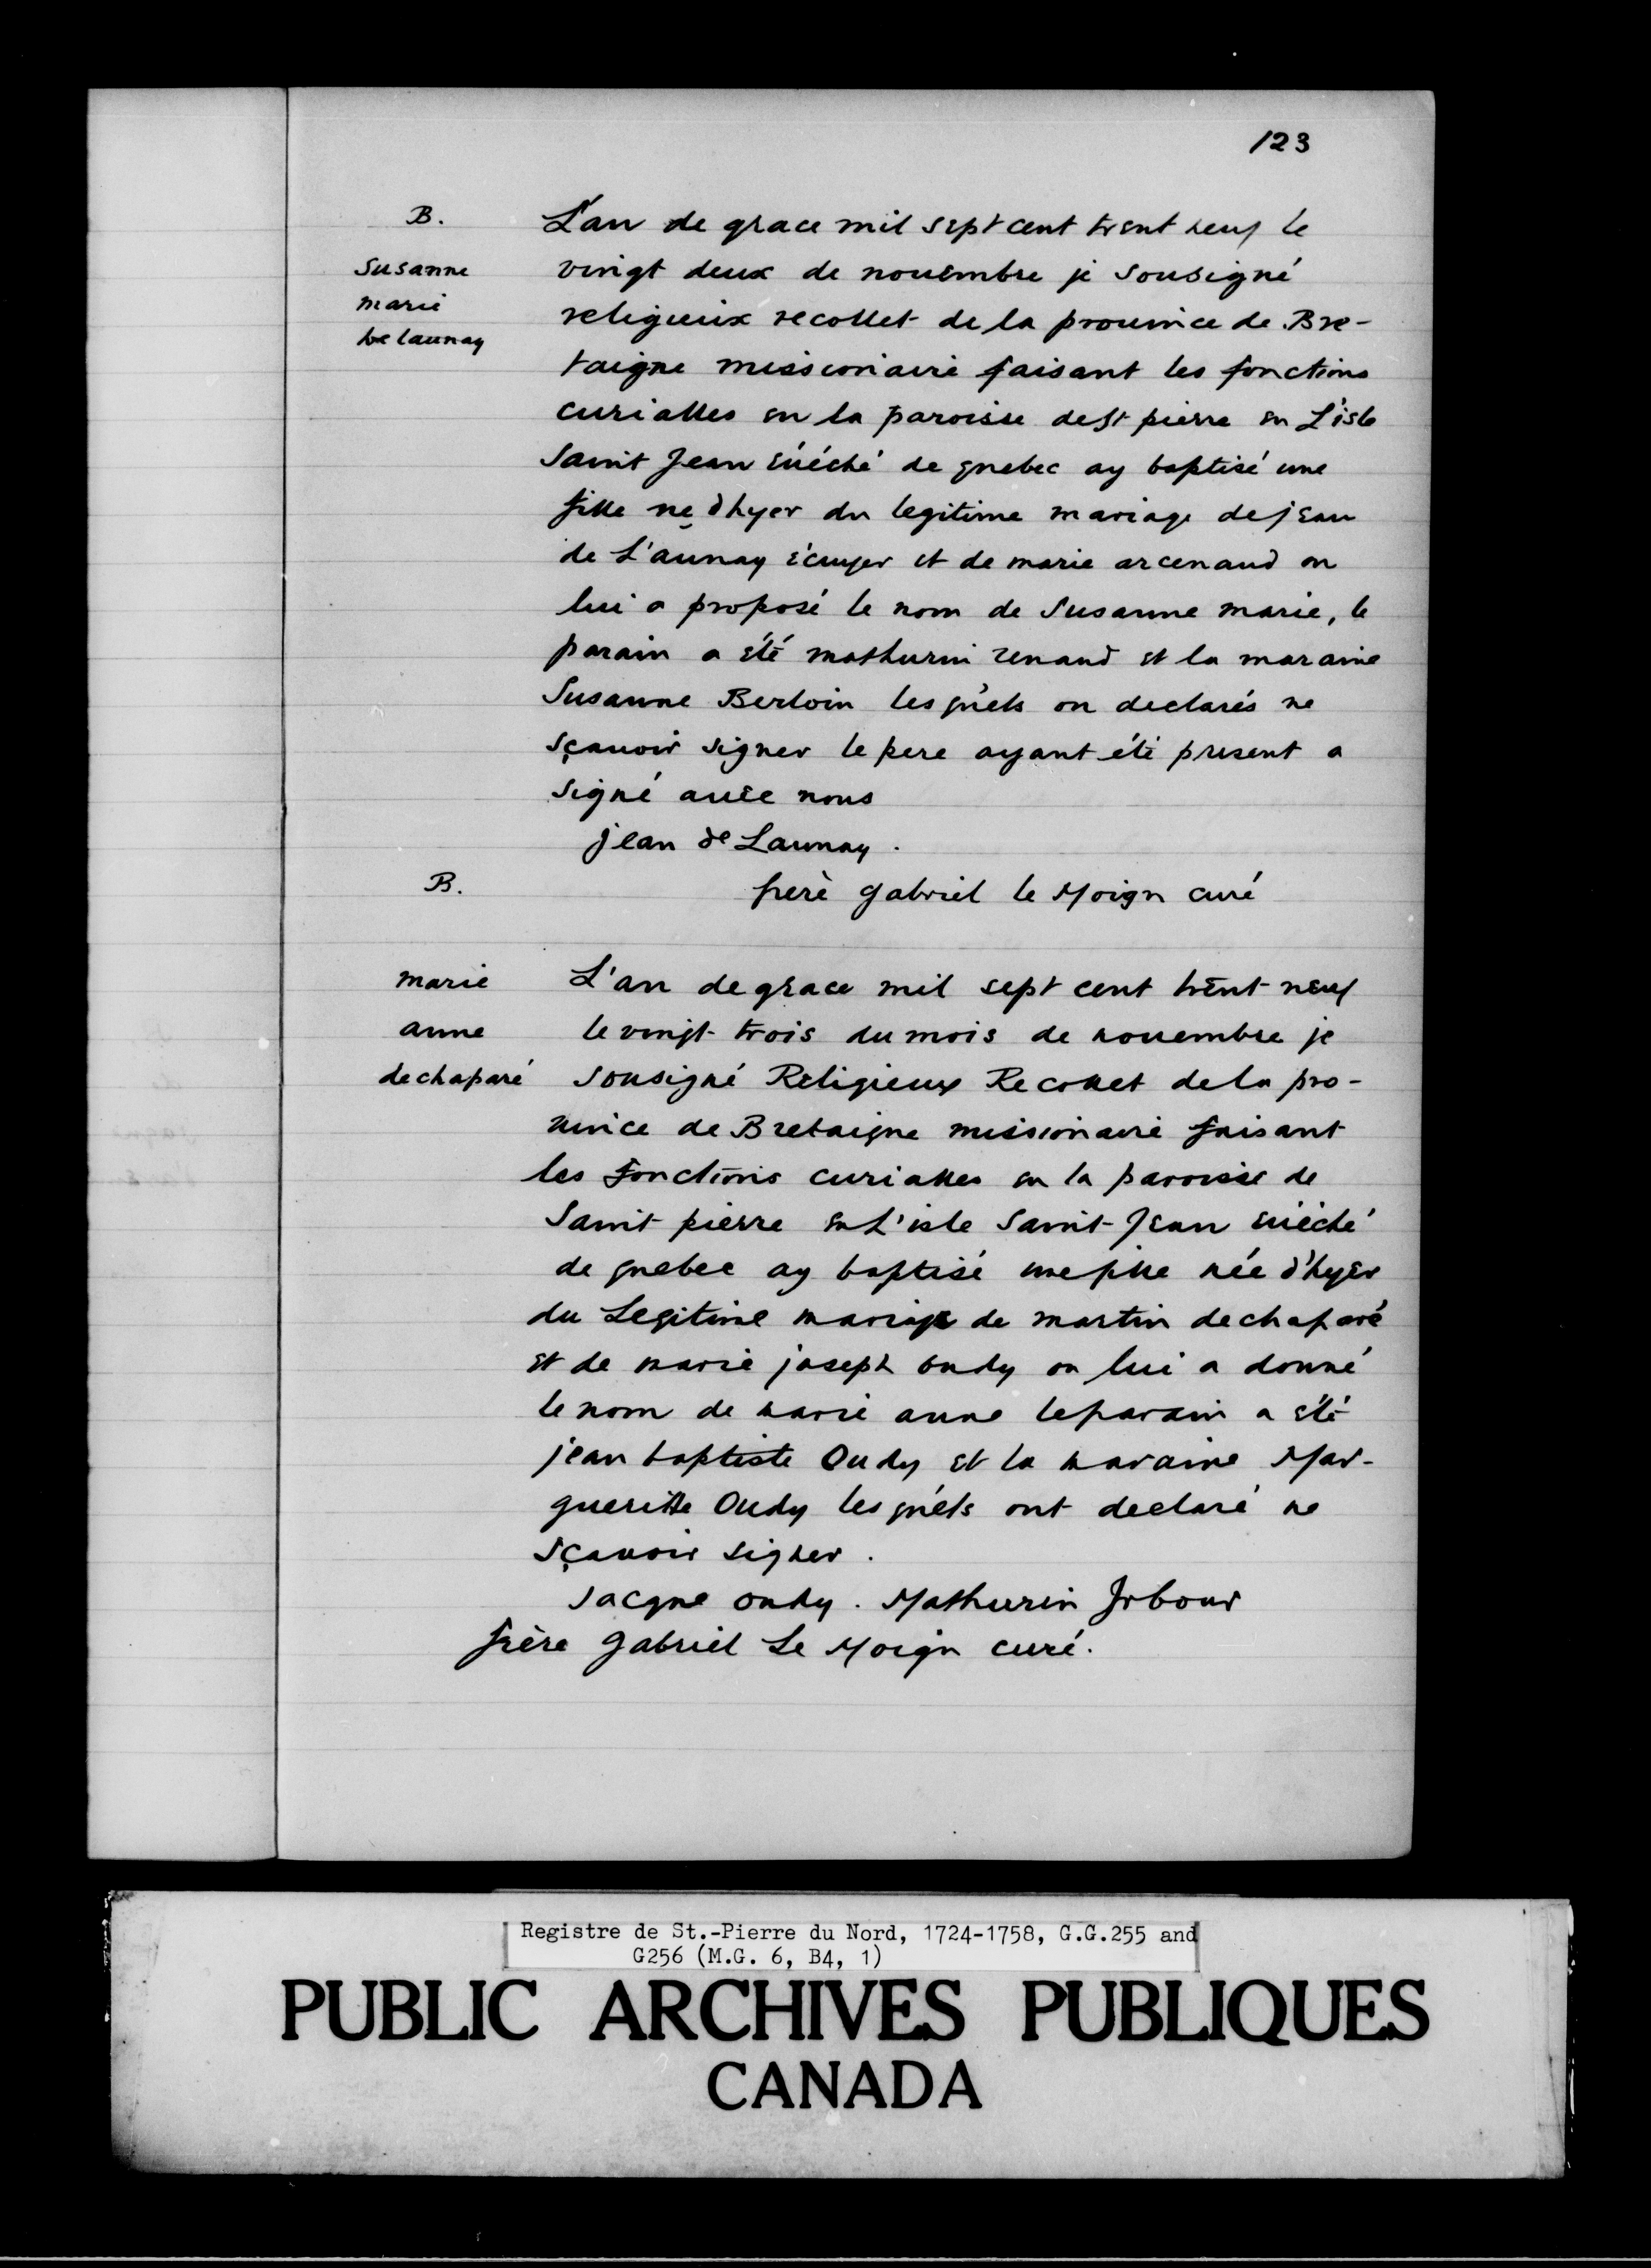 123
B.
Susanne
marie
de launay
L'an de grace mil sept cent trent neuf le
vingt deux de nouembre je sousigné
religieux recollet de la prouince de Bre-
taigne missionaire faisant les fonctions
curialles en la paroisse de St pierre en L'isle
Saint Jean éuéché de quebec ay baptisé une
fille ne d'hyer du legitime mariage de jean
de L'aunay écuyer et de marie arcenaud on
lui a proposé le nom de Susanne marie, le
parain a été mathurin renaud et la maraine
Susanne Berloin lesquels on declarés ne
sçauoir signer le pere ayant été present a
signé auec nous
jean de Launay.
frere gabriel le Moign curé
B.
marie
anne
dechaparé
L'an de grace mil sept cent trent neuf
le vingt trois du mois de nouembre je
sousigné Religieux Recollet de la pro-
uince de Bretaigne missionaire faisant
les fonctions curialles en la paroisse de
Saint pierre en L'isle Saint Jean éuéché
de quebec ay baptisé une fille née d'hyer
du Legitime mariage de martin dechaparé
et de marie joseph oudy on lui a donné
le nom de marie anne le parain a été
jean baptiste Oudy et la maraine Mar-
gueritte Oudy lesquels ont declaré ne
sçauoir signer.
Jacque oudy. Mathurin Jrbour
frère gabriel Le Moign curé.
Registre de St.-Pierre du Nord, 1724-1758, G.G.255 and
G256 (M.G. 6, B4, 1)
PUBLIC ARCHIVES PUBLIQUES
CANADA